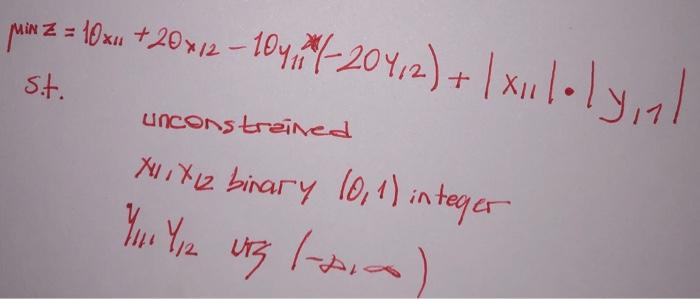 MIN Z = 10x11 + 20x12 - 10y11*(-20y12) + |x11|·|y11|
s.t.
unconstrained
x11, x12 binary (0,1) integer
y11, y12 urs (-∞,∞)